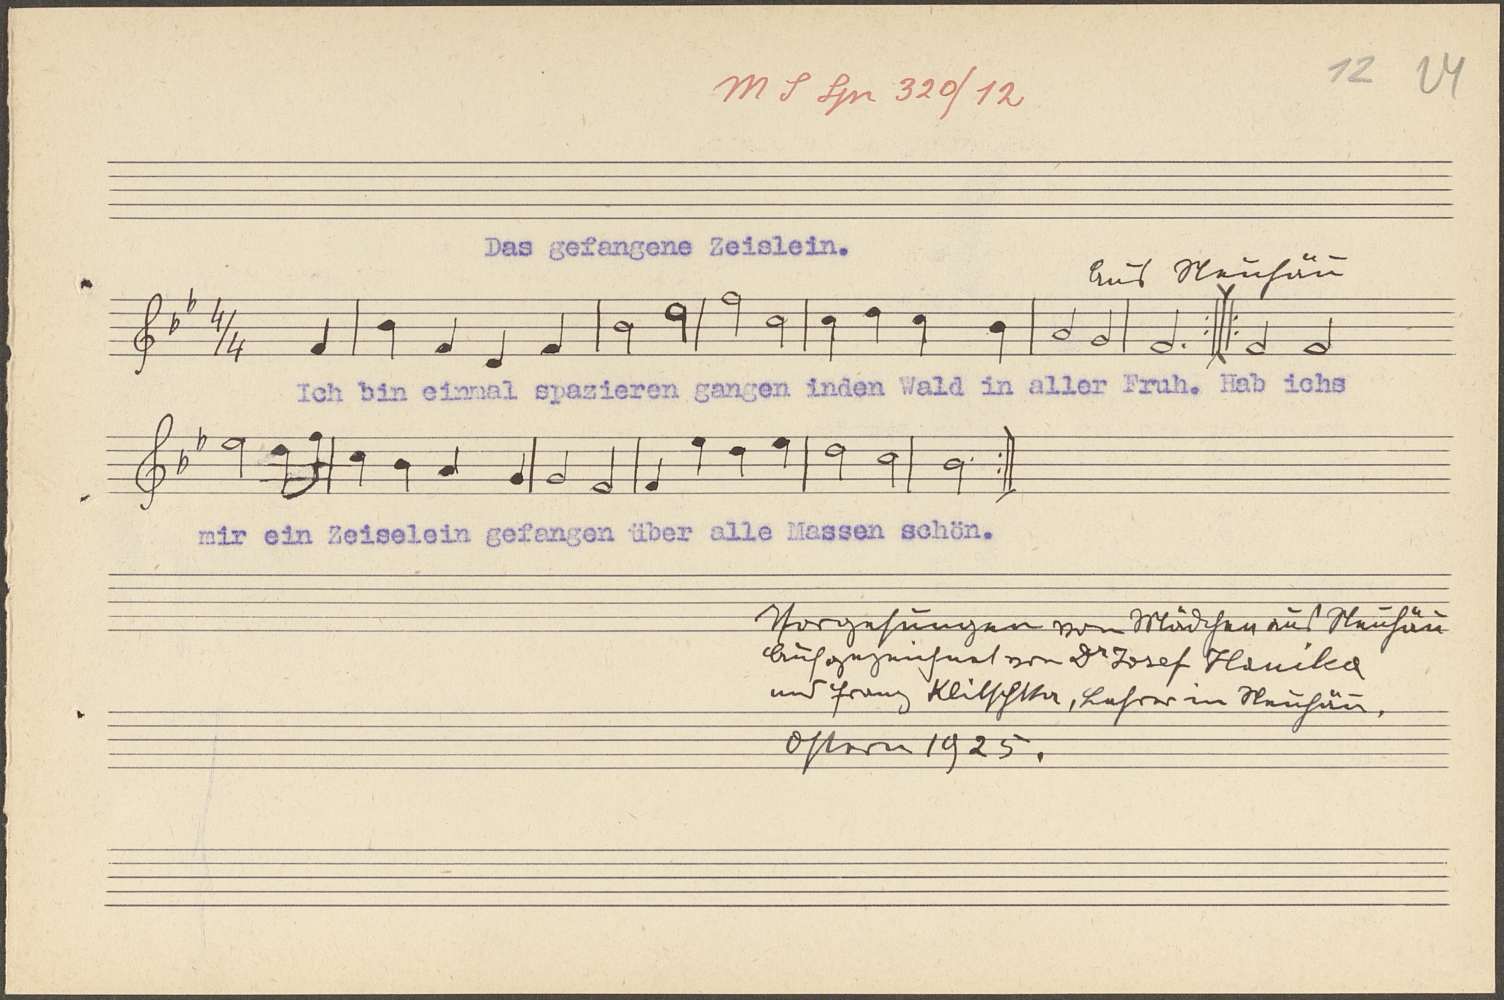 12 VI
M S Spr 320/12
Das gefangene Zeislein.
Aus Neuhäu
4/4
Ich bin einmal spazieren gangen inden Wald in aller Fruh. Hab ichs
mir ein Zeiselein gefangen über alle Massen schön.
Vorgesungen von Mädchen aus Neuhäu
Aufgezeichnet von Dr Josef Hanika
und Franz Klitschka, Lehrer in Neuhäu.
Ostern 1925.